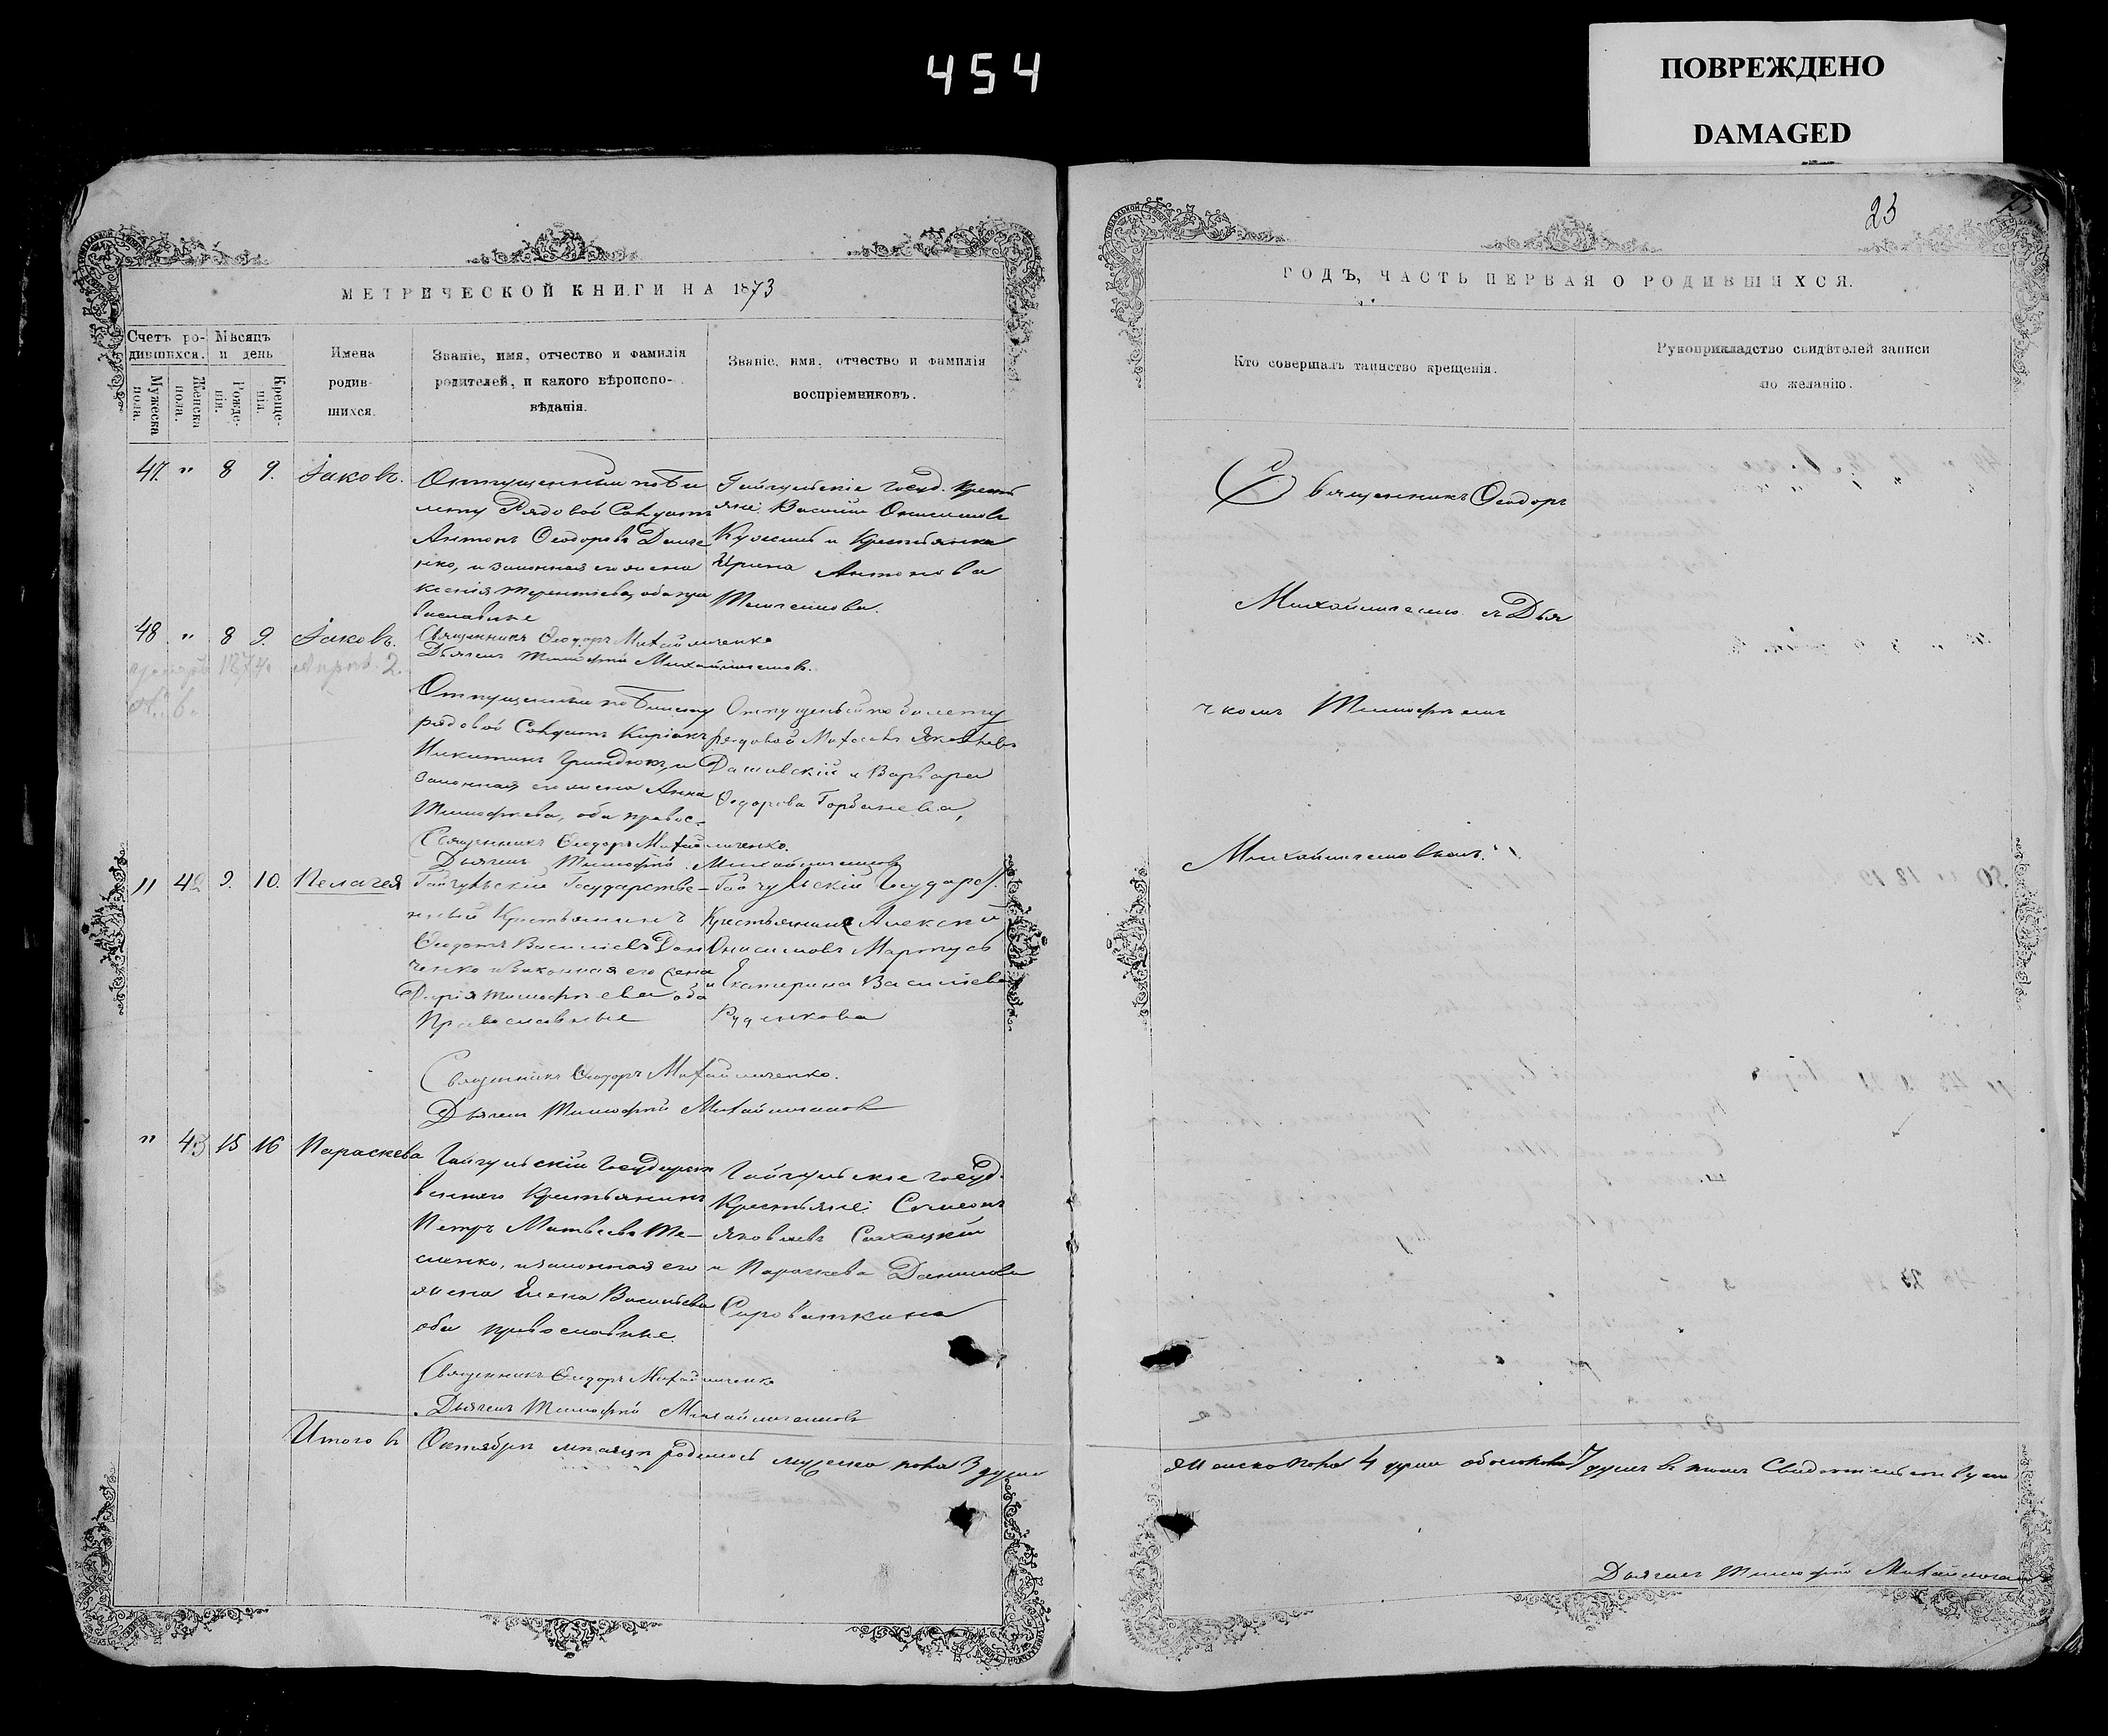 454
ПОВРЕЖДЕНО
DAMAGED
МЕТРИЧЕСКОЙ КНИГИ НА 1873
Счетъ ро-
дившихся.
Мужеска
пола.
Женска
пола.
Мѣсяцъ
и день
Рожде-
нія.
Креще-
нія.
Имена
родив-
шихся.
Званіе, имя, отчество и фамилія
родителей, и какого вѣроиспо-
вѣданія.
Званіе, имя, отчество и фамилія
воспріемниковъ.
47. " 8 9. Іаковъ.
Отпущенный по Би
лету Рядовой Солдатъ
Антонъ Феодоровъ
нко, и законная его жена
Ксенія Терентіева, оба пра
вославные
Гайчульскіе Госуд. Крест
яне: Василій Онисимовъ
и Крестьянка
Ирина Антонова
Священникъ Феодоръ Михайличенко
Дьячекъ Тимофей Михайличенковъ.
48 " 8 9. Іаковъ.
1874 2.
Отпущенный по Билету
рядовой Солдатъ Киріакъ
Никитинъ Гриндюкъ, и
законная его жена Анна
Тимофеева, оба правос.
Отпущеный по билету
рядовой Яковлевъ
Дашевскій и Варвара
Федорова Горбанева,
Священникъ Феодоръ Михайличенко.
Дьячекъ Тимофей Михайличенковъ
11 42 9. 10. Пелагея
Гайчульскій Государстве-
нный Крестьянинъ
Феодотъ Василіевъ Дон
ченко и Законная его Жена
Дарія Тимофеева оба
Православные
Гайчульскій Государст.
Крестьянинъ Алексей
Онисимовъ Мартусь
и Екатерина Василіева
Руденкова
Священникъ Феодоръ Михайличенко.
Дьячекъ Тимофей Михайличенковъ
" 43 15 16 Параскева
Гайчульскій Государст
венного Крестьянинъ
Петръ Матвеевъ Те-
сленко, и законная его
жена Елена Васильева
оба православные.
Гайчульскіе Госуд.
Крестьяне: Симеонъ
Яковлевъ
и Параскева Данилова
Сироваткина
Священникъ Феодоръ Михайличенко
Дьячекъ Тимофей Михайличенковъ
Итого въ Октябрѣ месяцѣ родилось мужеска пола 3 души
23
ГОДЪ, ЧАСТЬ ПЕРВАЯ О РОДИВШИХСЯ.
Кто совершалъ таинство крещенія.
Рукоприкладство свидѣтелей записи
по желанію.
Священникъ Феодоръ
Михайличенко съ Дья
чкомъ Тимофеемъ
Михайличенковымъ.
женска пола 4 души обоего пола 7 душъ въ томъ Свидетельствуемъ
Дьячекъ Тимофей Михайличенковъ